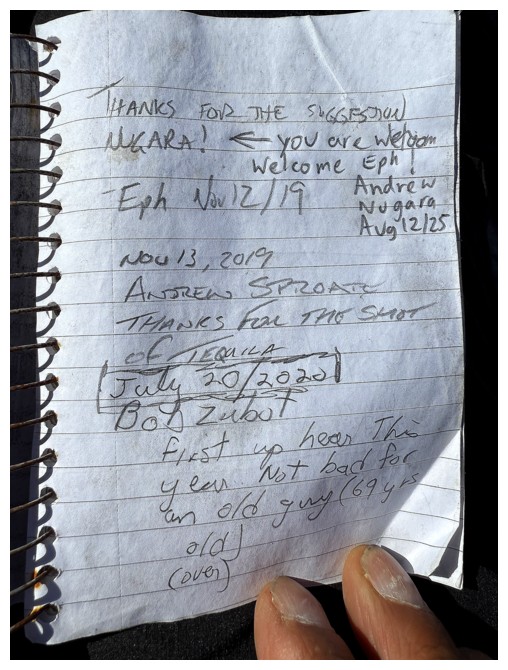 THANKS FOR THE SUGGESTION
NUGARA! ← you are welcom
Welcome Eph!
- Eph Nov 12/19
Andrew
Nugara
Aug 12/25
Nov 13, 2019
ANDREW
THANKS FOR THE SHOT
OF TEQUILA
July 20/2020
Bob Zubot
First up hear This
year. Not bad for
an old guy (69 yrs
old)
(over)